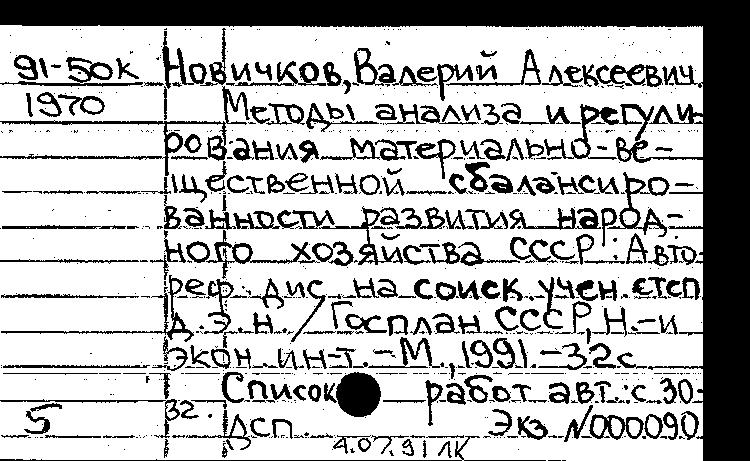 91-50к Новичков, Валерий Алексеевич.
1970 Методы анализа и регули-
рования материально-ве-
щественной сбалансиро-
ванности развития народ-
ного хозяйства СССР : Авто-
реф. дис. на соиск. учен. степ.
д.э.н. / Госплан СССР, Н.-и.
экон. ин-т. - М., 1991. - 32с.
Список работ авт.: с 30-
5 32. Дсп. Экз N000090
4.07.91 ЛК